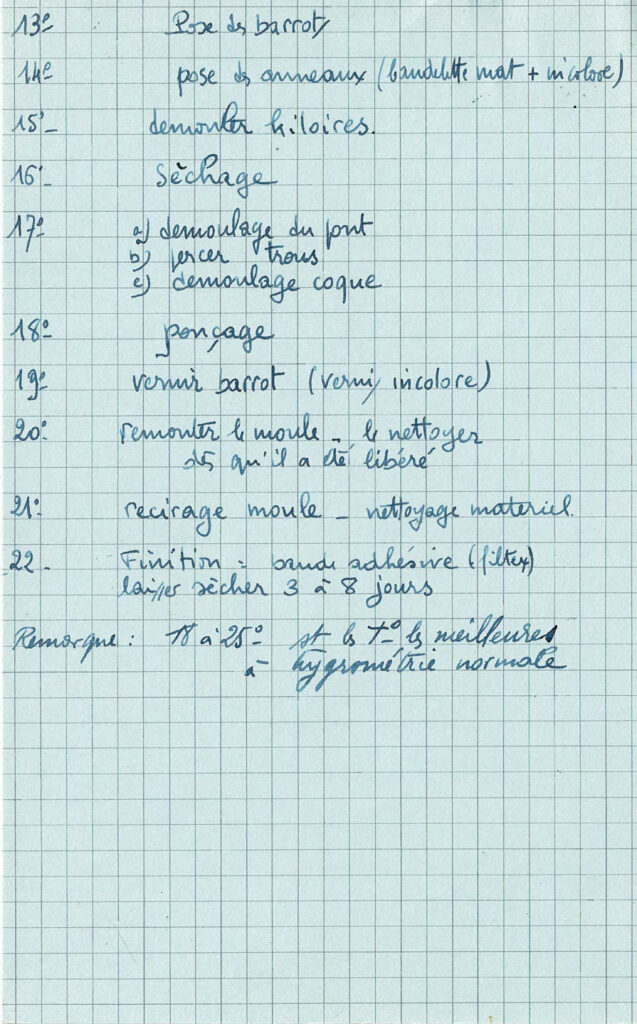 13º Pose des barrots
14º pose des anneaux (bandelette mat + incolore)
15º- demonter hiloires.
16º- Sèchage
17º a) demoulage du pont
b) percer trous
c) demoulage coque
18º- ponçage
19º vernir barrot (vernis incolore)
20º remonter le moule - le nettoyer
dès qu'il a été libéré
21º recirage moule - nettoyage materiel.
22 - Finition = bande adhésive (filtex)
laisser sècher 3 à 8 jours
Remarque : 18 à 25º st les Tº les meilleures
à - hygrométrie normale